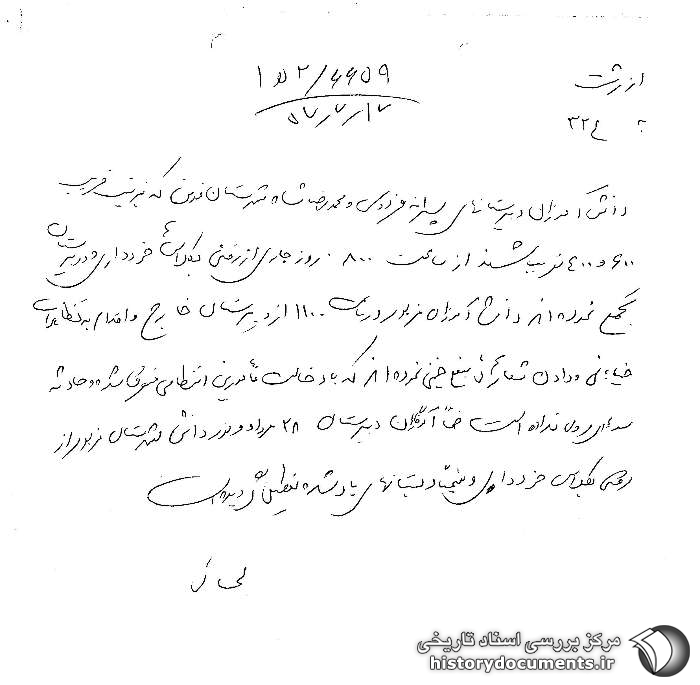 از رشت
به ۳۲۴
۱ ه ۲/۶۶۵۹
۵۷/۷/۱۲
دانش آموزان دبیرستانهای پسرانه فردوسی و محمدرضا شاه شهرستان فومن که به ترتیب قریب
۶۰۰ و ۴۰۰ نفر میباشند از ساعت ۸۰۰ روز جاری از رفتن بکلاسها خودداری و در دبیرستان
تجمع نموده اند دانش آموزان مزبور در ساعت ۱۱۰۰ از دبیرستان خارج و اقدام به تظاهرات
خیابانی و دادن شعارهائی بنفع خمینی نموده اند که با دخالت مأمورین انتظامی متفرق شده و حادثه
سوئی روی نداده است ضمناً دبیرستان ۲۸ مرداد و دانش شهرستان مزبور از
رفتن بکلاس خودداری و نتیجتاً دبستانهای یاد شده تعطیل گردیده است
مرکز بررسی اسناد تاریخی
historydocuments.ir